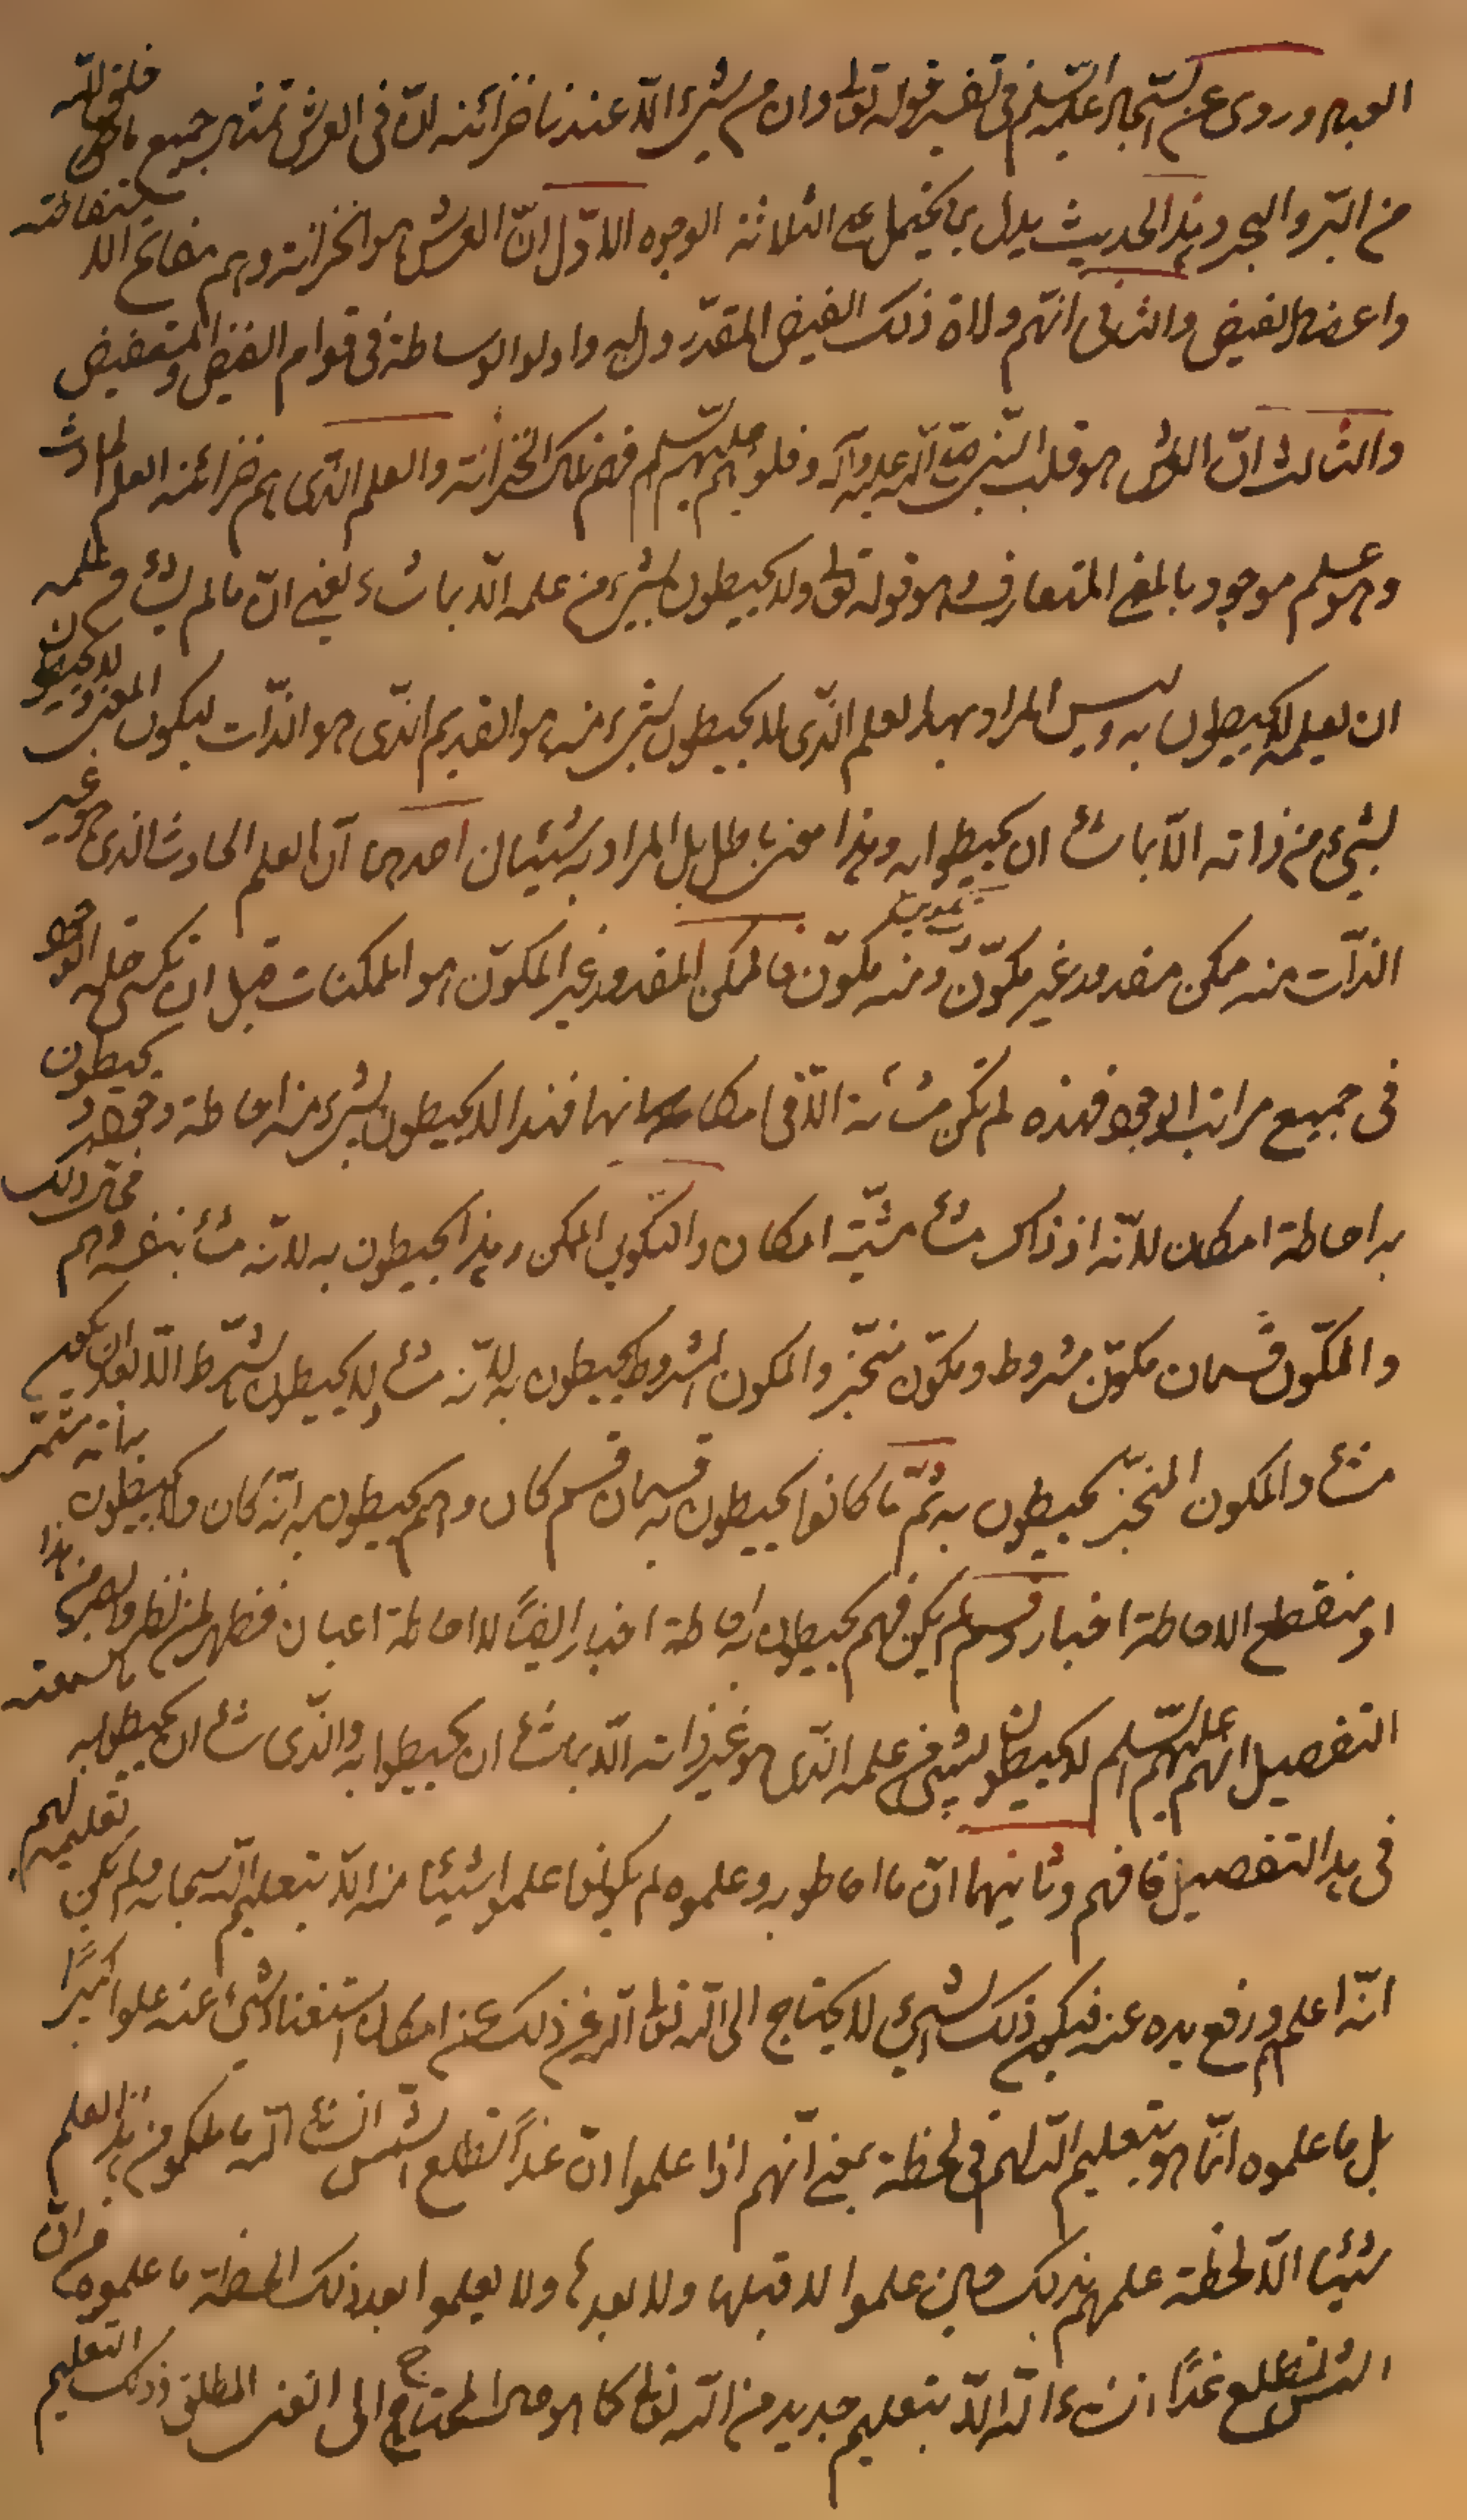 العباد وروى عن السجاد عليه السلم فى تفسير قوله تعالى وان من شىء الا عندنا خزائنه ان فى العرش تمثال جميع ما خلق الله
من البر والبحر وهذا الحديث يدل بما يحتمل على الثلاثة الوجوه الاول ان العرش هو الخزانة وهم مفاتح الاستفاضة
واعضاد الفيض والثانى انهم ولاة ذلك الفيض المقدر واولوا الوساطة فى قوام الفيض والمستفيض
والثالث ان العرش هو قلب النبى صلى الله عليه وآله وقلوبهم عليهم السلم فهم تلك الخزانة والعلم الذى هم خزائنه العلم الحادث
وهو علم موجود بالمعنى المتعارف وهو قوله تعالى ولا يحيطون بشىء من علمه الا بما شاء يعنى ان ما لم يشأ من علمه
ان يعلمه لا يحيطون به وليس المراد بهذا العلم الذى لا يحيطون بشىء منه هو القديم الذى هو الذات ليكون المعنى لا يحيطون
بشىء من ذاته الا بما شاء ان يحيطوا به وهذا معنى باطل بل المراد به شيئان احدهما ان العلم الحادث الذى هو غير
الذات منه ممكن مقدور غير مكون ومنه تكوين ومنه مكون فالممكن المقدور غير المكون هو الممكنات قبل ان تكسى حلة الوجود
فى جميع مراتب الوجود فهذه لم تكن مشائة الا فى امكاناتها فهذا لا يحيطون بشىء منه احاطة وجود ويحيطون
به احاطة امكان لانه اذ ذاك مشاء مشية امكان والتكوين الممكن وهذا يحيطون به لانه مشاء بنفسه وهم محال ذلك
والمكون قسمان مكون مشروط ومكون منجز والمكون المشروط يحيطون به لانه مشاء ولا يحيطون بالشرط الا بعد ان يكون
مشاء والمكون المنجز يحيطون به ثم ما كانوا يحيطون به قسمان قسم كان وهم يحيطون به انه كان ولا يحيطون بانه مستمر
او منقطع الا احاطة اخبار وقسم لم يكن فهم يحيطون به احاطة اخبار ايضًا لا احاطة اعيان فظهر لمن نظر وابصر من هذا
التفصيل انهم عليهم السلم لا يحيطون بشىء من علمه الذى هو غير ذاته الا بما شاء ان يحيطوا به والذى شاء ان يحيطوا به ما سمعته
فى هذا التفصيل فافهم وثانيهما ان ما احاطوا به وعلموه لم يكونوا علموا شيئا منه الا بتعليم الله سبحانه ولم يكن تعليمه لهم
انه اعلمهم ورفع يده عنه فيكون ذلك الشىء لا يحتاج الى الله تعالى الله عن ذلك عن امكان استغناء شىء عنه علوا كبيرًا
بل ما علموه انما هو بتعليم الله لهم فى لحظة بمعنى انهم اذا علموا ان غدًا تطلع الشمس ان شاء الله ما ملكوا من هذا العلم
شيئا الا لحظة علمهم بذلك حين علموا لا قبلها ولا بعدها ولا يعلموا بعد ذلك اللحظة ما علموه من ان
الشمس تطلع غدًا ان شاء الله الا بتعليم جديد من الله تعالى كما هو حال المحتاج الى الغنى المطلق وذلك التعليم